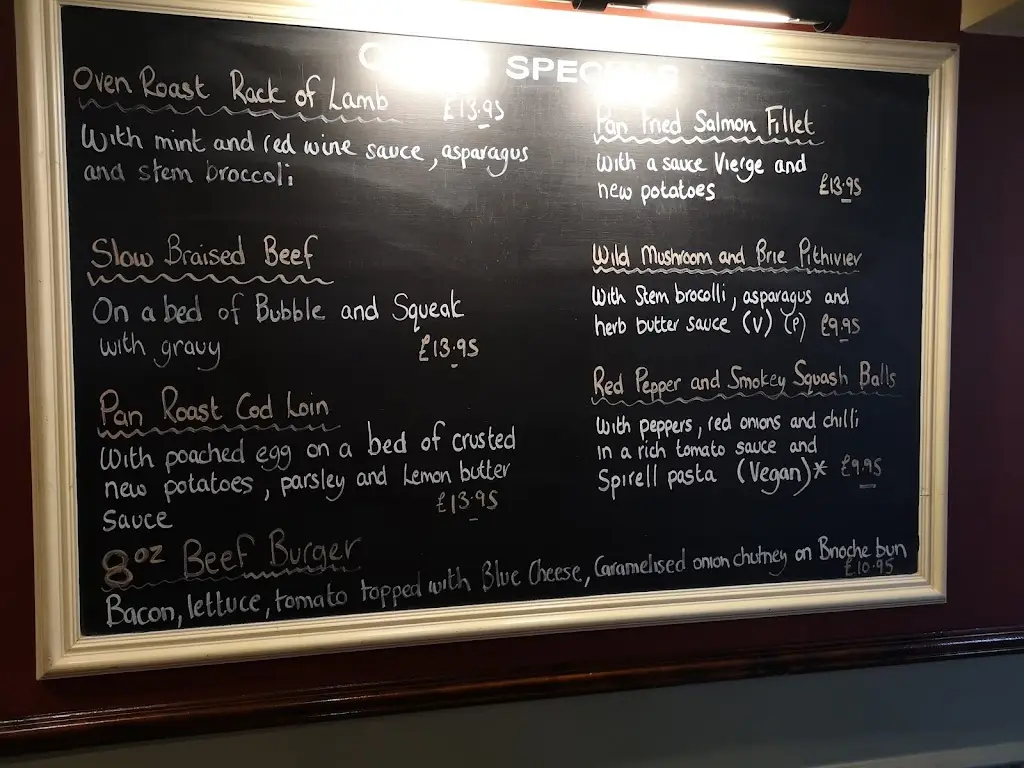 SPECIALS
Oven Roast Rack of Lamb £13.95
With mint and red wine sauce, asparagus
and stem broccoli
Slow Braised Beef
On a bed of Bubble and Squeak
with gravy £13.95
Pan Roast Cod Loin
With poached egg on a bed of crusted
new potatoes, parsley and Lemon butter
Sauce £13.95
8oz Beef Burger
Bacon, lettuce, tomato topped with Blue Cheese, Caramelised onion chutney on Brioche bun
£10.95
Pan Fried Salmon Fillet
With a sauce Vierge and
new potatoes £13.95
Wild Mushroom and Brie Pithivier
With Stem brocolli, asparagus and
herb butter sauce (V) (P) £9.95
Red Pepper and Smokey Squash Balls
With peppers, red onions and chilli
in a rich tomato sauce and
Spirell pasta (Vegan)* £9.95